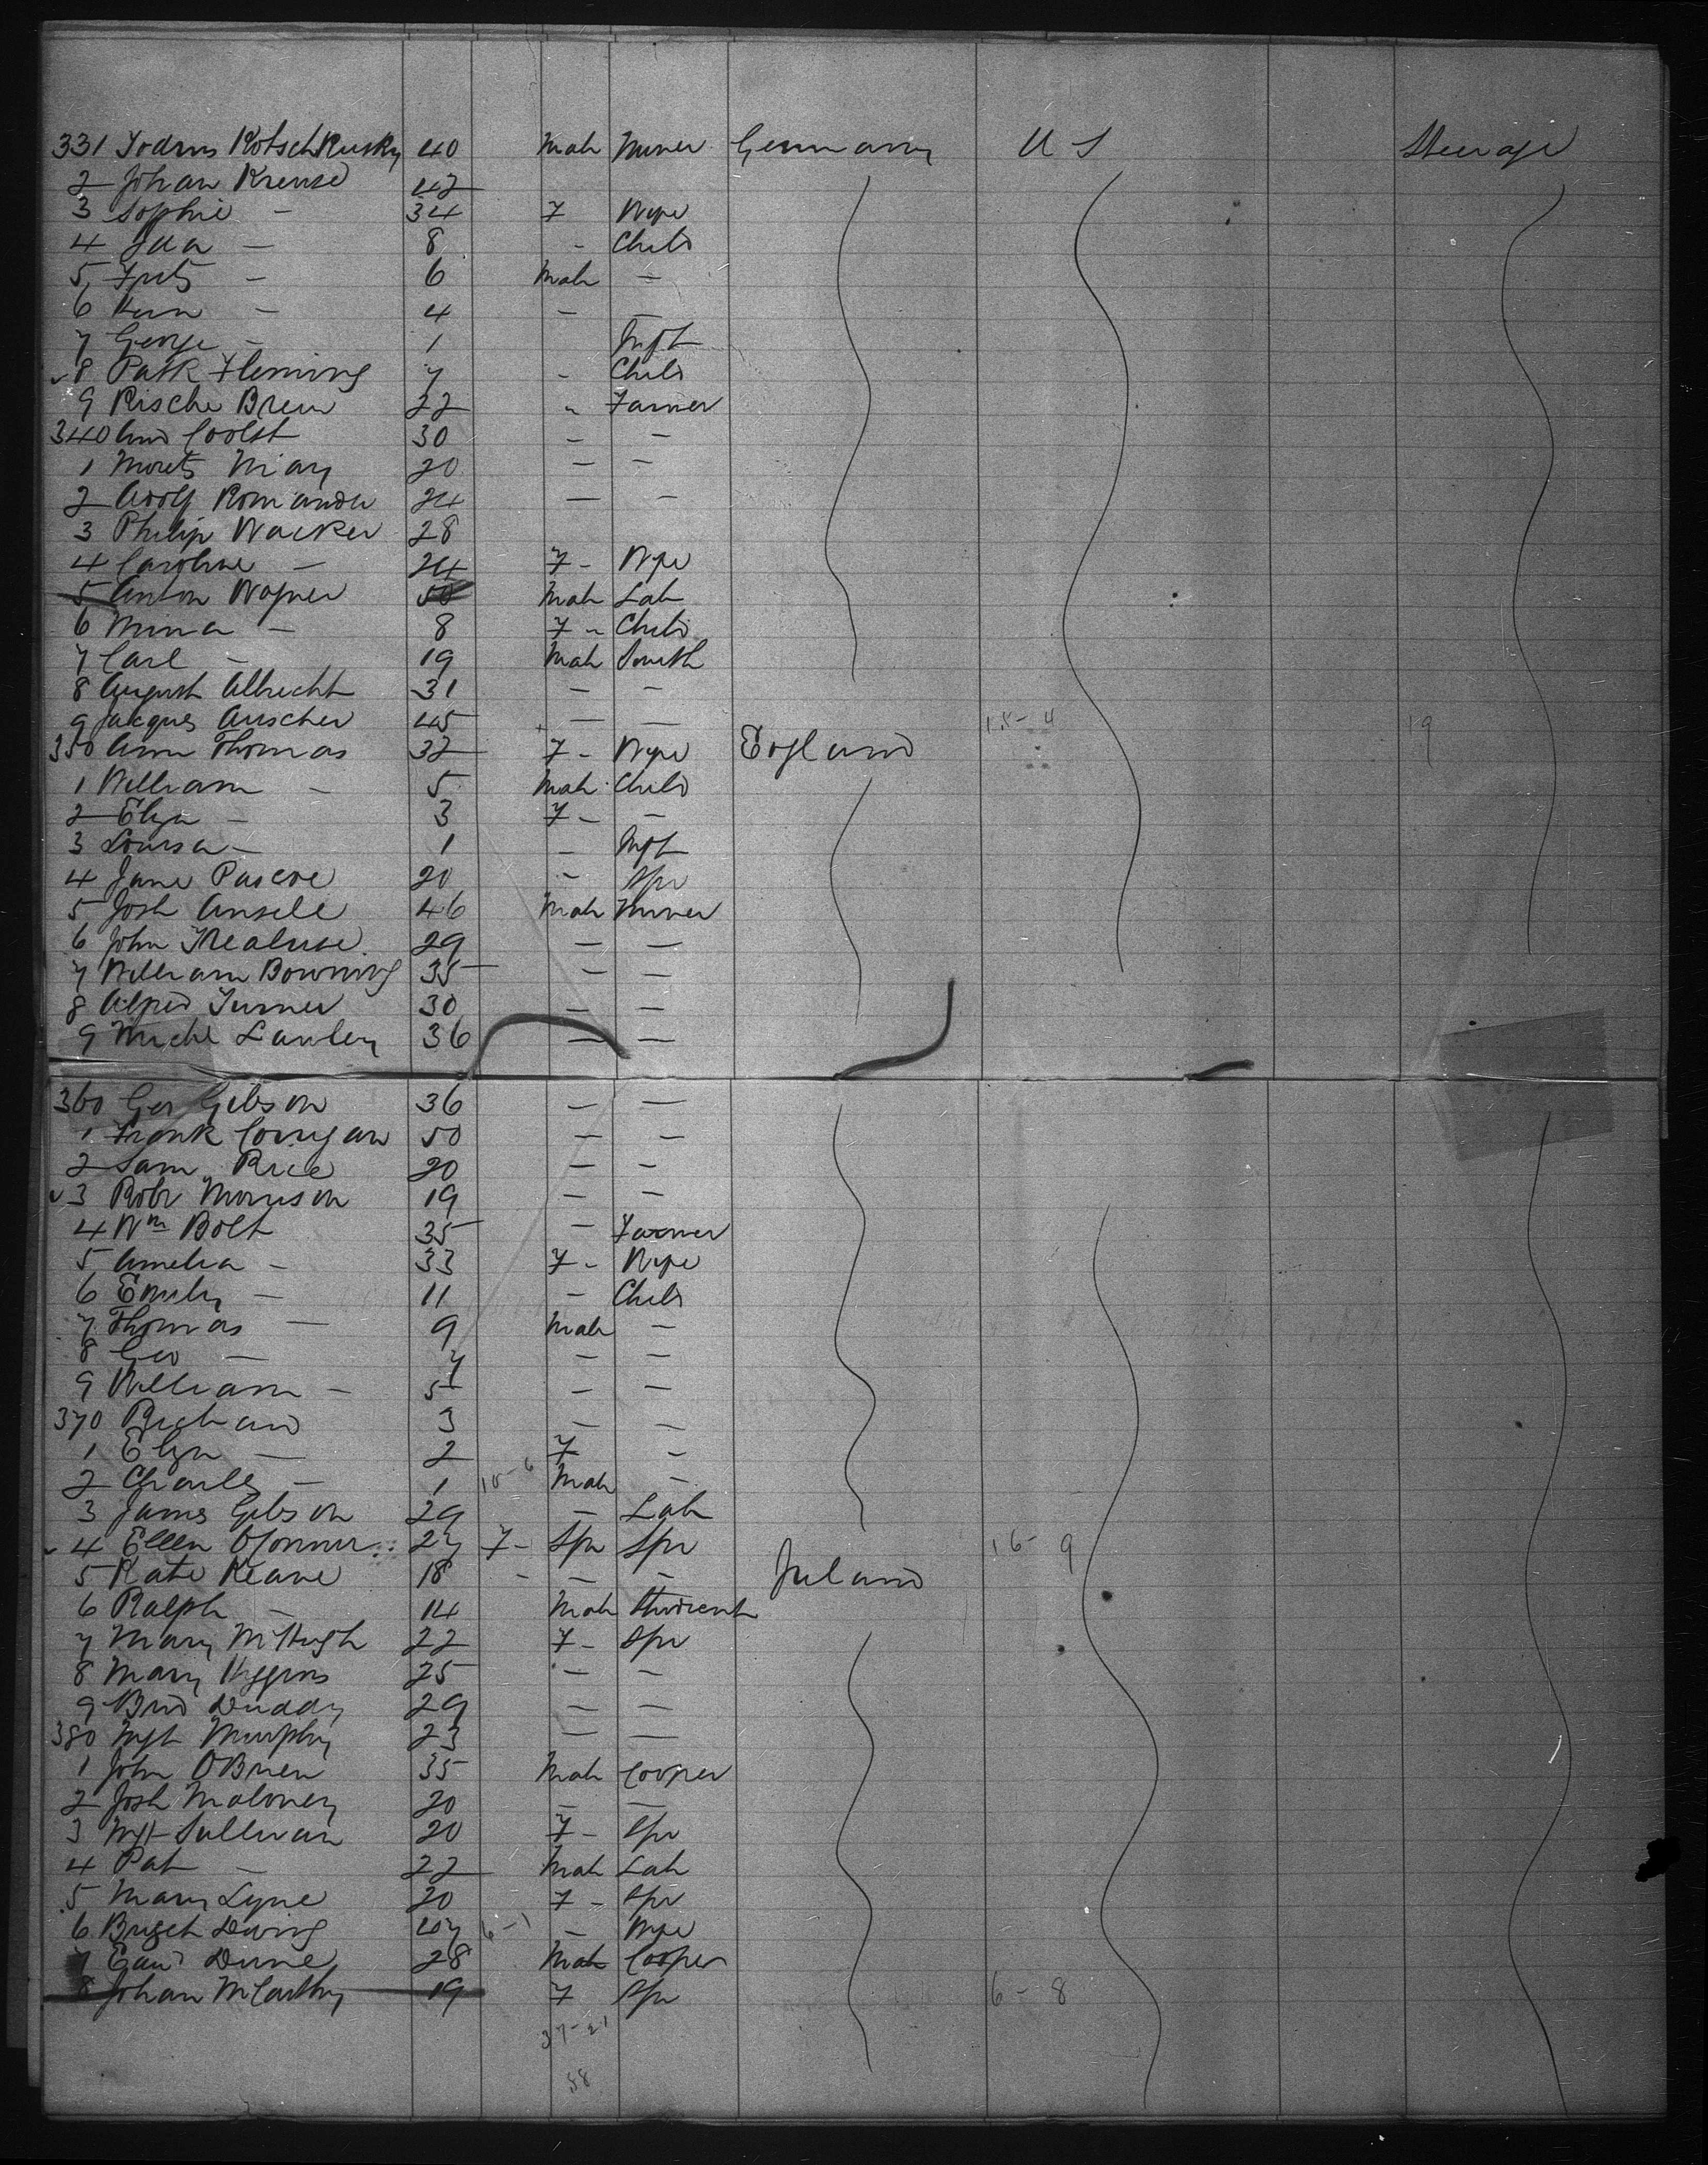 331 Kotschkusky 40 Male Miner Germany U S Steerage
2 Johan Kreuse 42
3 Sophie - 34 F Wife
4 Ida - 8 - Child
5 Fritz - 6 Male -
6 - 4 - -
7 George - 1 Inft
8 Patk Fleming 7 - Child
9 Rische Brem 22 " Farmer
340 30 - -
1 Moritz May 20 - -
2 Adolf 24 - -
3 Philip Wacker 28
4 Caroline - 24 F - Wife
5 Anton Wagner 50 Male Lab
6 Minna - 8 F - Child
7 Carl - 19 Male Smith
8 August Albrecht 31 - -
9 Jacques Auscher 45 - - 15-4 19
350 Ann Thomas 32 F - Wife England
1 William - 5 Male Child
2 Eliza - 3 F - -
3 Louisa - 1 - Inft
4 Jane Pascoe 20 - Spr
5 Josh Ansell 46 Male Miner
6 John 29 - -
7 William Bowning 35 - -
8 Alfred Turner 30 - -
9 Michl Lawley 36 - -
360 Geo Gibson 36 - -
1 Frank Corrigan 50 - -
2 Sam Rice 20 - -
3 Robt Morrison 19 - -
4 Wm Bolt 35 - Farmer
5 Amelia - 33 F - Wife
6 Emily - 11 - Child
7 Thomas - 9 Male -
8 Geo - 7 - -
9 William - 5 - -
370 Richard 3 - -
1 Eliza - 2 F -
2 Charles - 1 Male -
3 James Gibson 29 - Lab
4 Ellen OConnor 27 F - Spr Spr 16-9
5 Kate Keane 18 - - - Ireland
6 Ralph - 14 Male Student
7 Mary McHugh 22 F - Spr
8 Mary Higgins 25 - -
9 Brid Duddy 29 - -
380 Mgt Murphy 23 - -
1 John OBrien 35 Male Cooper
2 Josh Maloney 20 - -
3 Mgt Sullivan 20 F - Spr
4 Pat - 22 Male Lab
5 Mary Lyne 20 F - Spr
6 Bridget 47 6-1 - Wife
7 Edwd Dunne 28 Male Cooper
8 Johan McCarthy 19 F Spr 6-8
37-21
58